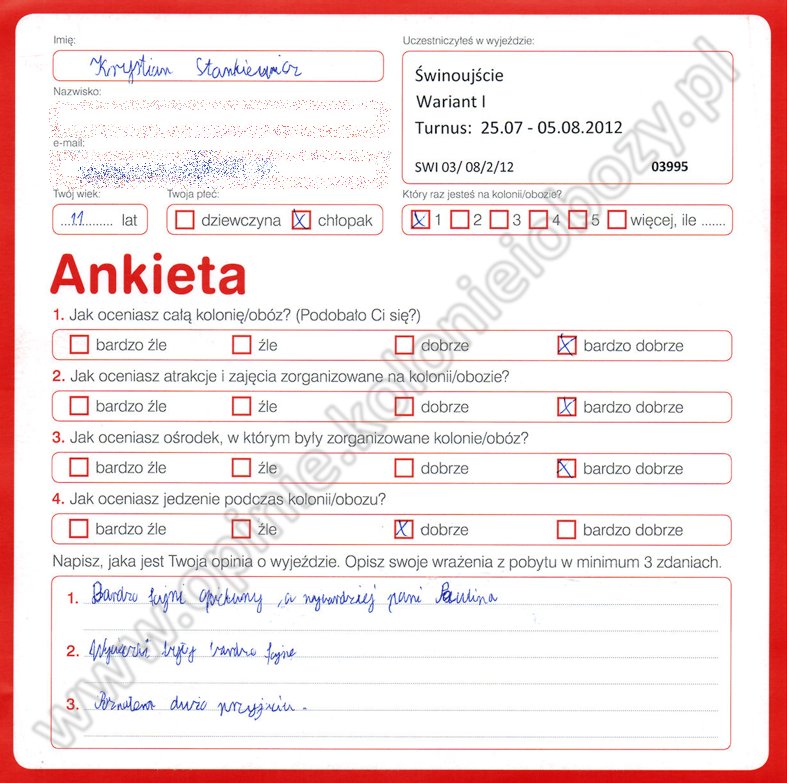 Imię:
Krystian Stankiewicz
Nazwisko:
e-mail:
Twój wiek:
...11......... lat
Twoja płeć:
dziewczyna X chłopak
Uczestniczyłeś w wyjeździe:
Świnoujście
Wariant I
Turnus: 25.07 - 05.08.2012
SWI 03/ 08/2/12 03995
Który raz jesteś na kolonii/obozie?
X 1 2 3 4 5 więcej, ile .......
Ankieta
1. Jak oceniasz całą kolonię/obóz? (Podobało Ci się?)
bardzo źle źle dobrze X bardzo dobrze
2. Jak oceniasz atrakcje i zajęcia zorganizowane na kolonii/obozie?
bardzo źle źle dobrze X bardzo dobrze
3. Jak oceniasz ośrodek, w którym były zorganizowane kolonie/obóz?
bardzo źle źle dobrze X bardzo dobrze
4. Jak oceniasz jedzenie podczas kolonii/obozu?
bardzo źle źle X dobrze bardzo dobrze
Napisz, jaka jest Twoja opinia o wyjeździe. Opisz swoje wrażenia z pobytu w minimum 3 zdaniach.
1. Bardzo fajni opiekuny, a najbardziej pani Paulina
2. Wycieczki były bardzo fajne
3. dużo
www.opinie.kolonieiobozy.pl